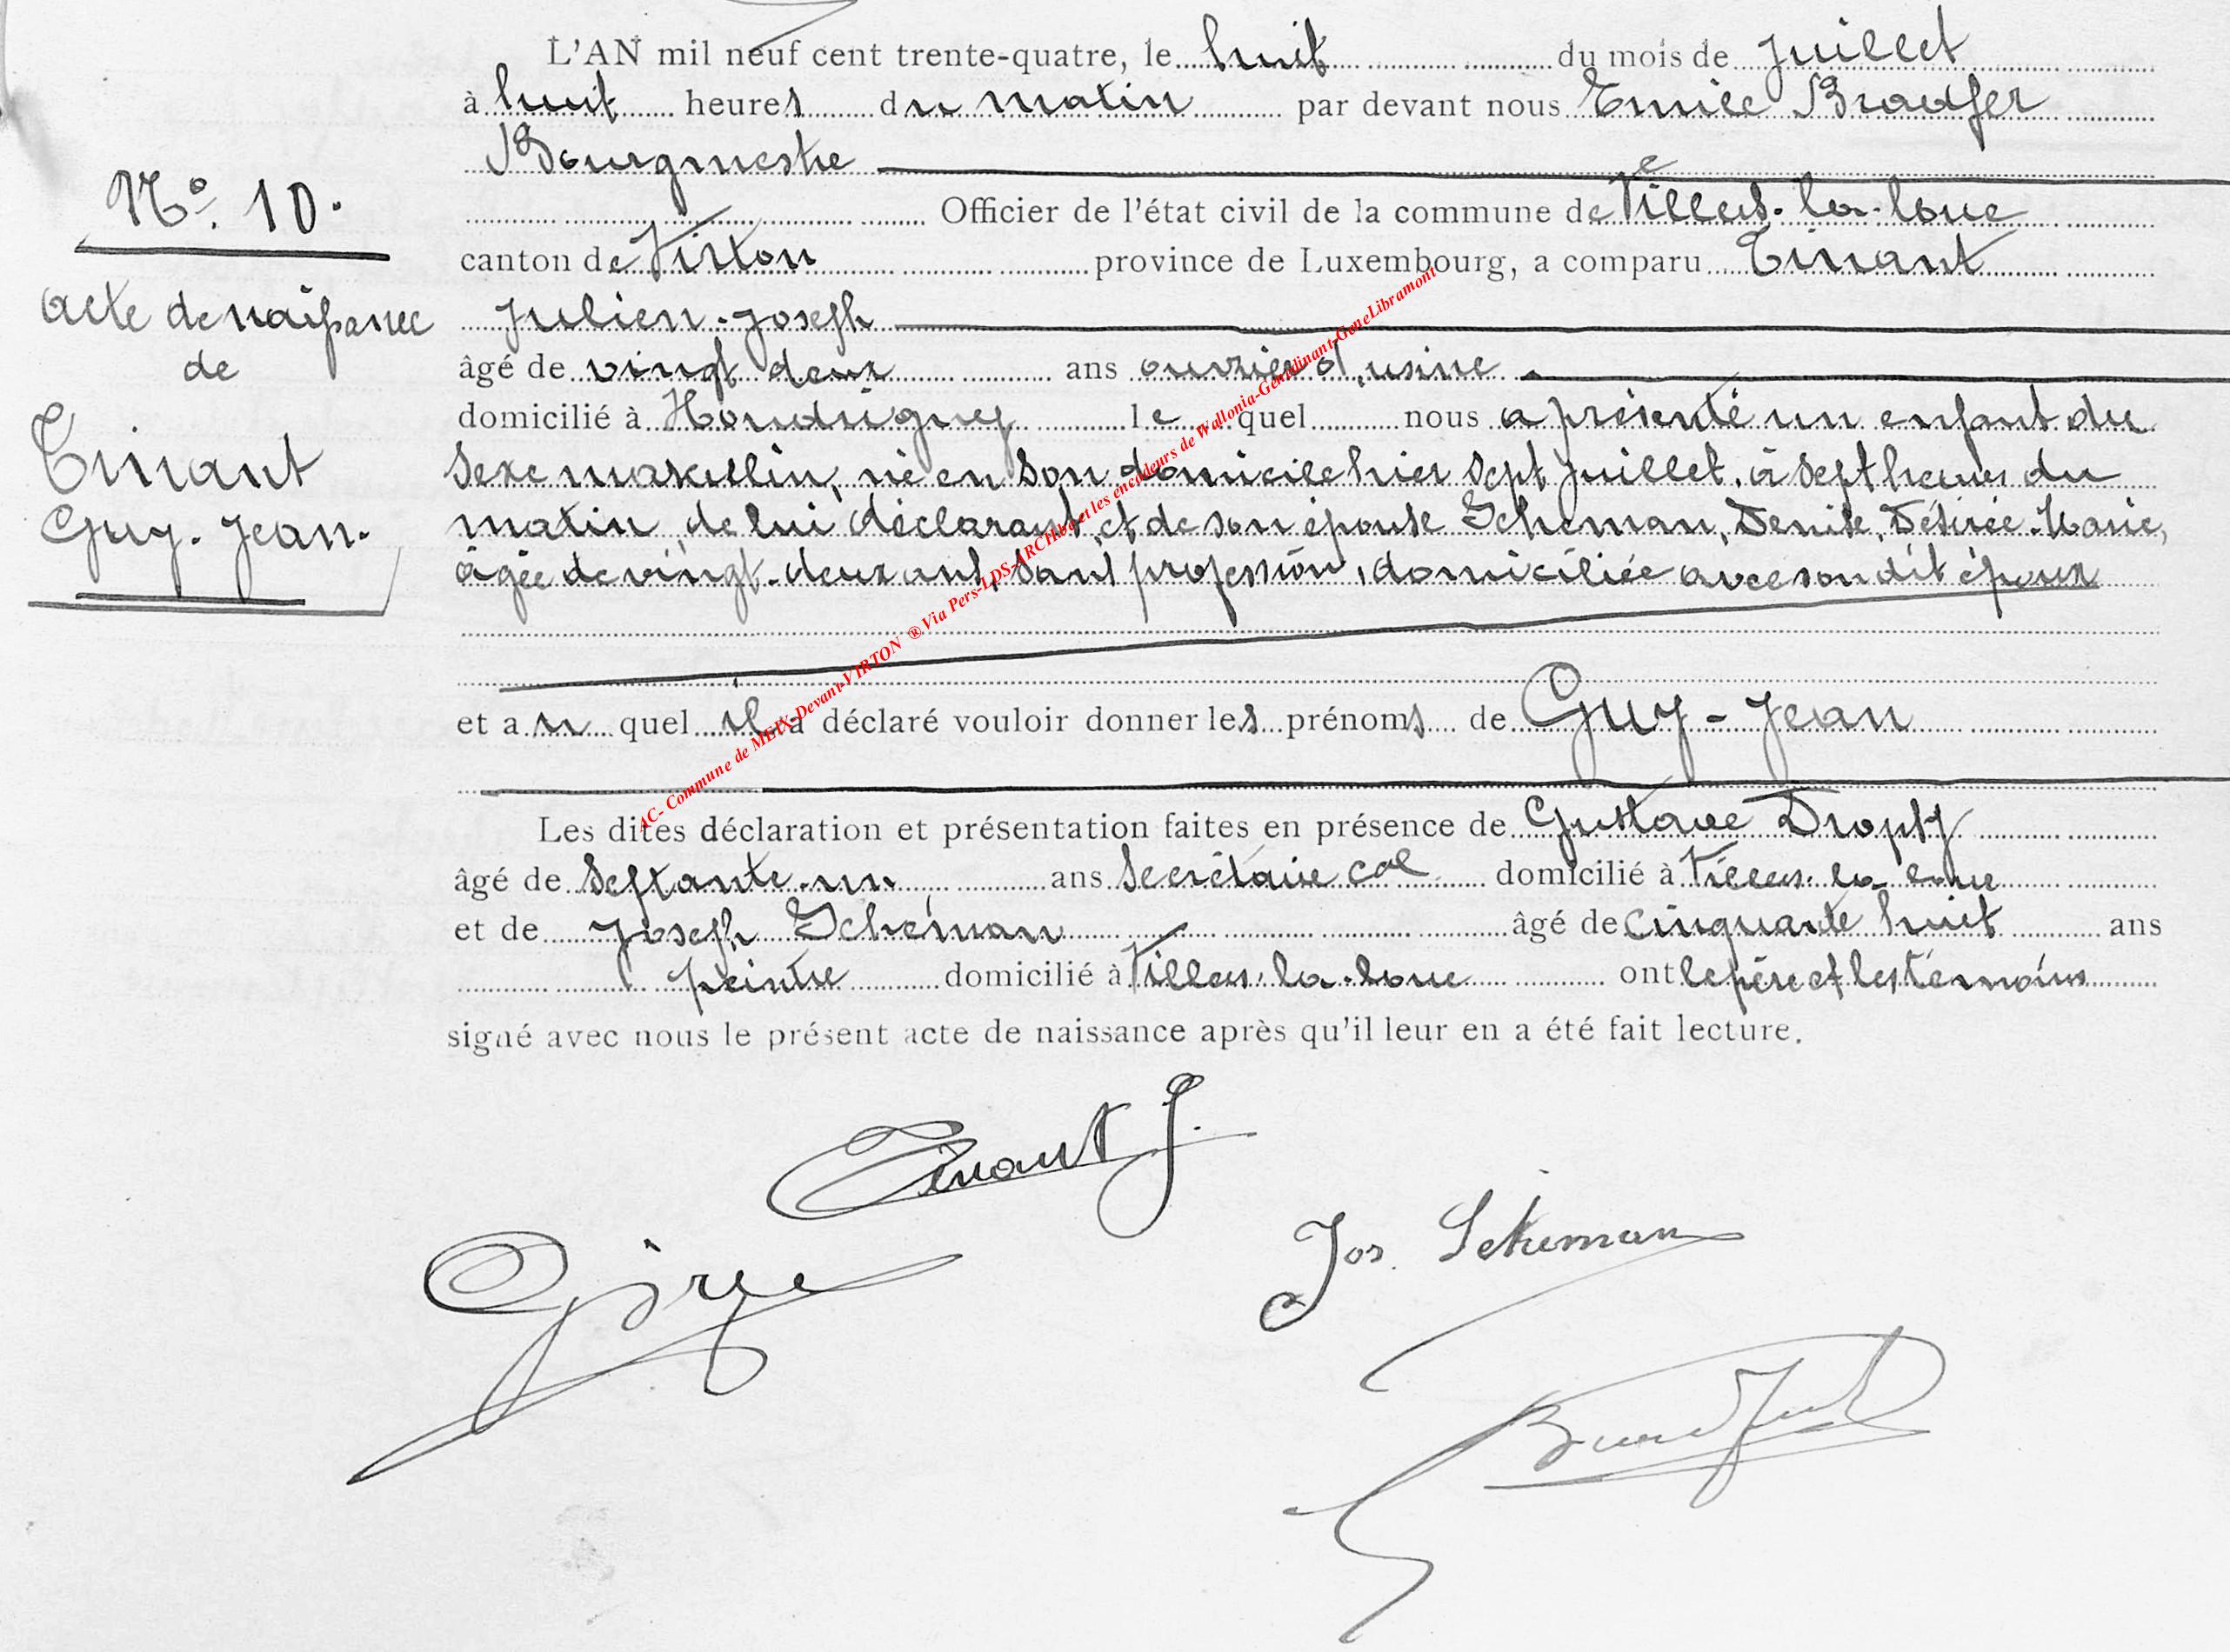 L'AN mil neuf cent trente-quatre, le huit du mois de Juillet
à huit heures du matin par devant nous Emile Bradfer
Bourgmestre
Officier de l'état civil de la commune de Villers-la-loue
canton de Virton province de Luxembourg, a comparu Tinant
Julien-Joseph
âgé de vingt deux ans ouvrier d'usine
domicilié à Houdrigny lequel nous a présenté un enfant du
sexe masculin, né en son domicile hier sept juillet, à sept heures du
matin, de lui déclarant, et de son épouse Schéman, Denise, Désirée-Marie,
âgée de vingt-deux ans, sans profession, domiciliée avec son dit époux
et au quel il a déclaré vouloir donner les prénoms de Guy-Jean
Les dites déclaration et présentation faites en présence de Gustave Dropsy
âgé de septante-un ans secrétaire cal domicilié à Villers-la-loue
et de Joseph Schéman âgé de cinquante huit ans
peintre domicilié à Villers-la-loue ont le père et les témoins
signé avec nous le présent acte de naissance après qu'il leur en a été fait lecture.
No. 10.
Acte de naissance
de
Tinant
Guy-Jean.
AC- Commune de MEIX-Devant-VIRTON ® Via Pers-LDS-ARCH.be et les encodeurs de Wallonia-Genedinant-GeneLibramont
Tinant J.
Jos. Scheman